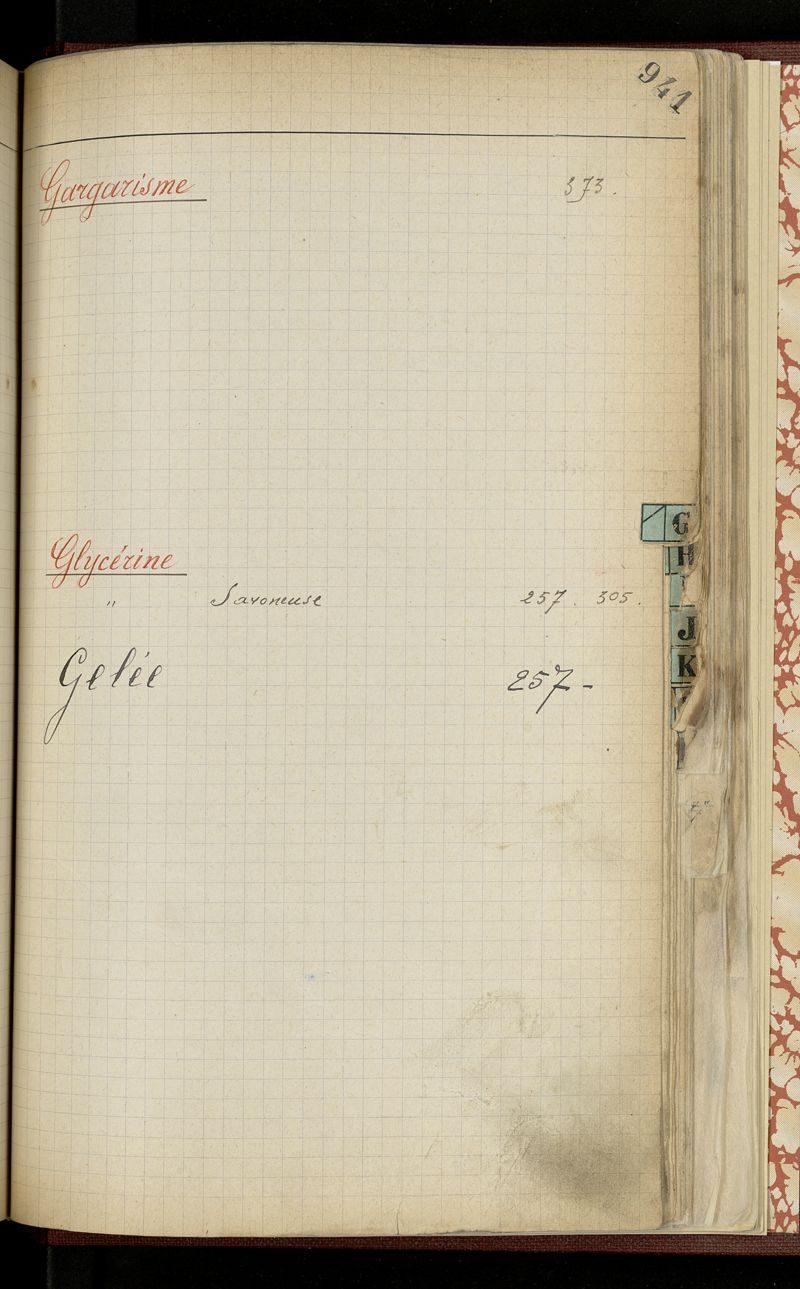 941
Gargarisme 373.
G
Glycérine
H
" Savoneuse 257. 305.
J
K
Gelée 257-